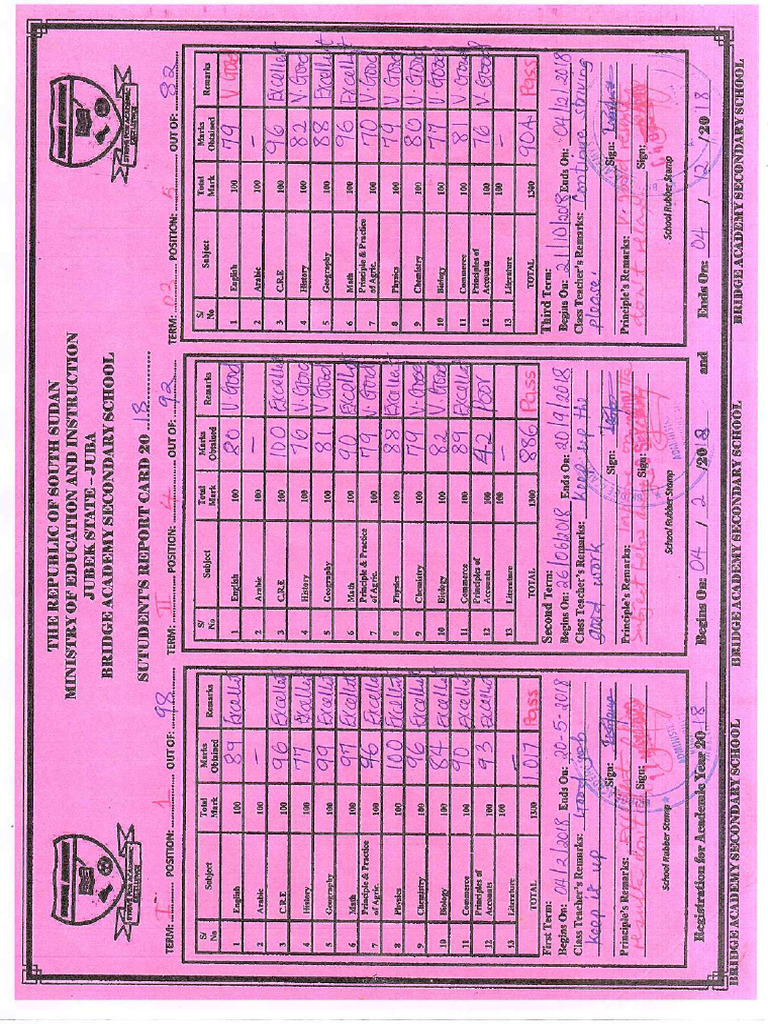 THE REPUBLIC OF SOUTH SUDAN
MINISTRY OF EDUCATION AND INSTRUCTION
JUBEK STATE – JUBA
BRIDGE ACADEMY SECONDARY SCHOOL
SUTUDENT'S REPORT CARD 2018
STRIVE FOR ACADEMIC EXCELLENCE
STRIVE FOR ACADEMIC EXCELLENCE
TERM: I POSITION: 1 OUT OF: 98
S/No Subject Total Mark Marks Obtained Remarks
1 English 100 89 Excellent
2 Arabic 100 –
3 C.R.E 100 96 Excellent
4 History 100 77 Excellent
5 Geography 100 99 Excellent
6 Math 100 97 Excellent
7 Principle & Practice of Agric. 100 96 Excellent
8 Physics 100 100 Excellent
9 Chemistry 100 96 Excellent
10 Biology 100 84 Excellent
11 Commerce 100 90 Excellent
12 Principles of Accounts 100 93 Excellent
13 Literature 100 –
TOTAL 1300 1,017 Pass
First Term:
Begins On: 04/2/2018 Ends On: 20-5-2018
Class Teacher's Remarks: Good job
keep it up Sign:
Principle's Remarks: Excellent
results don't Sign:
School Rubber Stamp
TERM: II POSITION: 4 OUT OF: 92
S/No Subject Total Mark Marks Obtained Remarks
1 English 100 80 V. Good
2 Arabic 100 –
3 C.R.E 100 100 Excellent
4 History 100 76 V. Good
5 Geography 100 81 V. Good
6 Math 100 90 Excellent
7 Principle & Practice of Agric. 100 79 V. Good
8 Physics 100 88 Excellent
9 Chemistry 100 79 V. Good
10 Biology 100 82 V. Good
11 Commerce 100 89 Excellent
12 Principles of Accounts 100 42 Poor
13 Literature 100 –
TOTAL 1300 886 Pass
Second Term:
Begins On: 26/06/2018 Ends On: 20/9/2018
Class Teacher's Remarks: Keep up the
good work Sign:
Principle's Remarks:
Sign:
School Rubber Stamp
TERM: 03 POSITION: 5 OUT OF: 82
S/No Subject Total Mark Marks Obtained Remarks
1 English 100 79 V. Good
2 Arabic 100 –
3 C.R.E 100 96 Excellent
4 History 100 82 V. Good
5 Geography 100 88 Excellent
6 Math 100 96 Excellent
7 Principle & Practice of Agric. 100 70 V. Good
8 Physics 100 79 V. Good
9 Chemistry 100 80 V. Good
10 Biology 100 77 V. Good
11 Commerce 100 81 V. Good
12 Principles of Accounts 100 76 V. Good
13 Literature 100 –
TOTAL 1300 904 Pass
Third Term:
Begins On: 21/10/2018 Ends On: 04/12/2018
Class Teacher's Remarks: Continue striving
please! Sign:
Principle's Remarks: V. good result
don't relax Sign:
School Rubber Stamp
Registration for Academic Year 2018 Begins On: 04 / 2 /2018 and Ends On: 04 / 12 /2018
BRIDGE ACADEMY SECONDARY SCHOOL BRIDGE ACADEMY SECONDARY SCHOOL BRIDGE ACADEMY SECONDARY SCHOOL